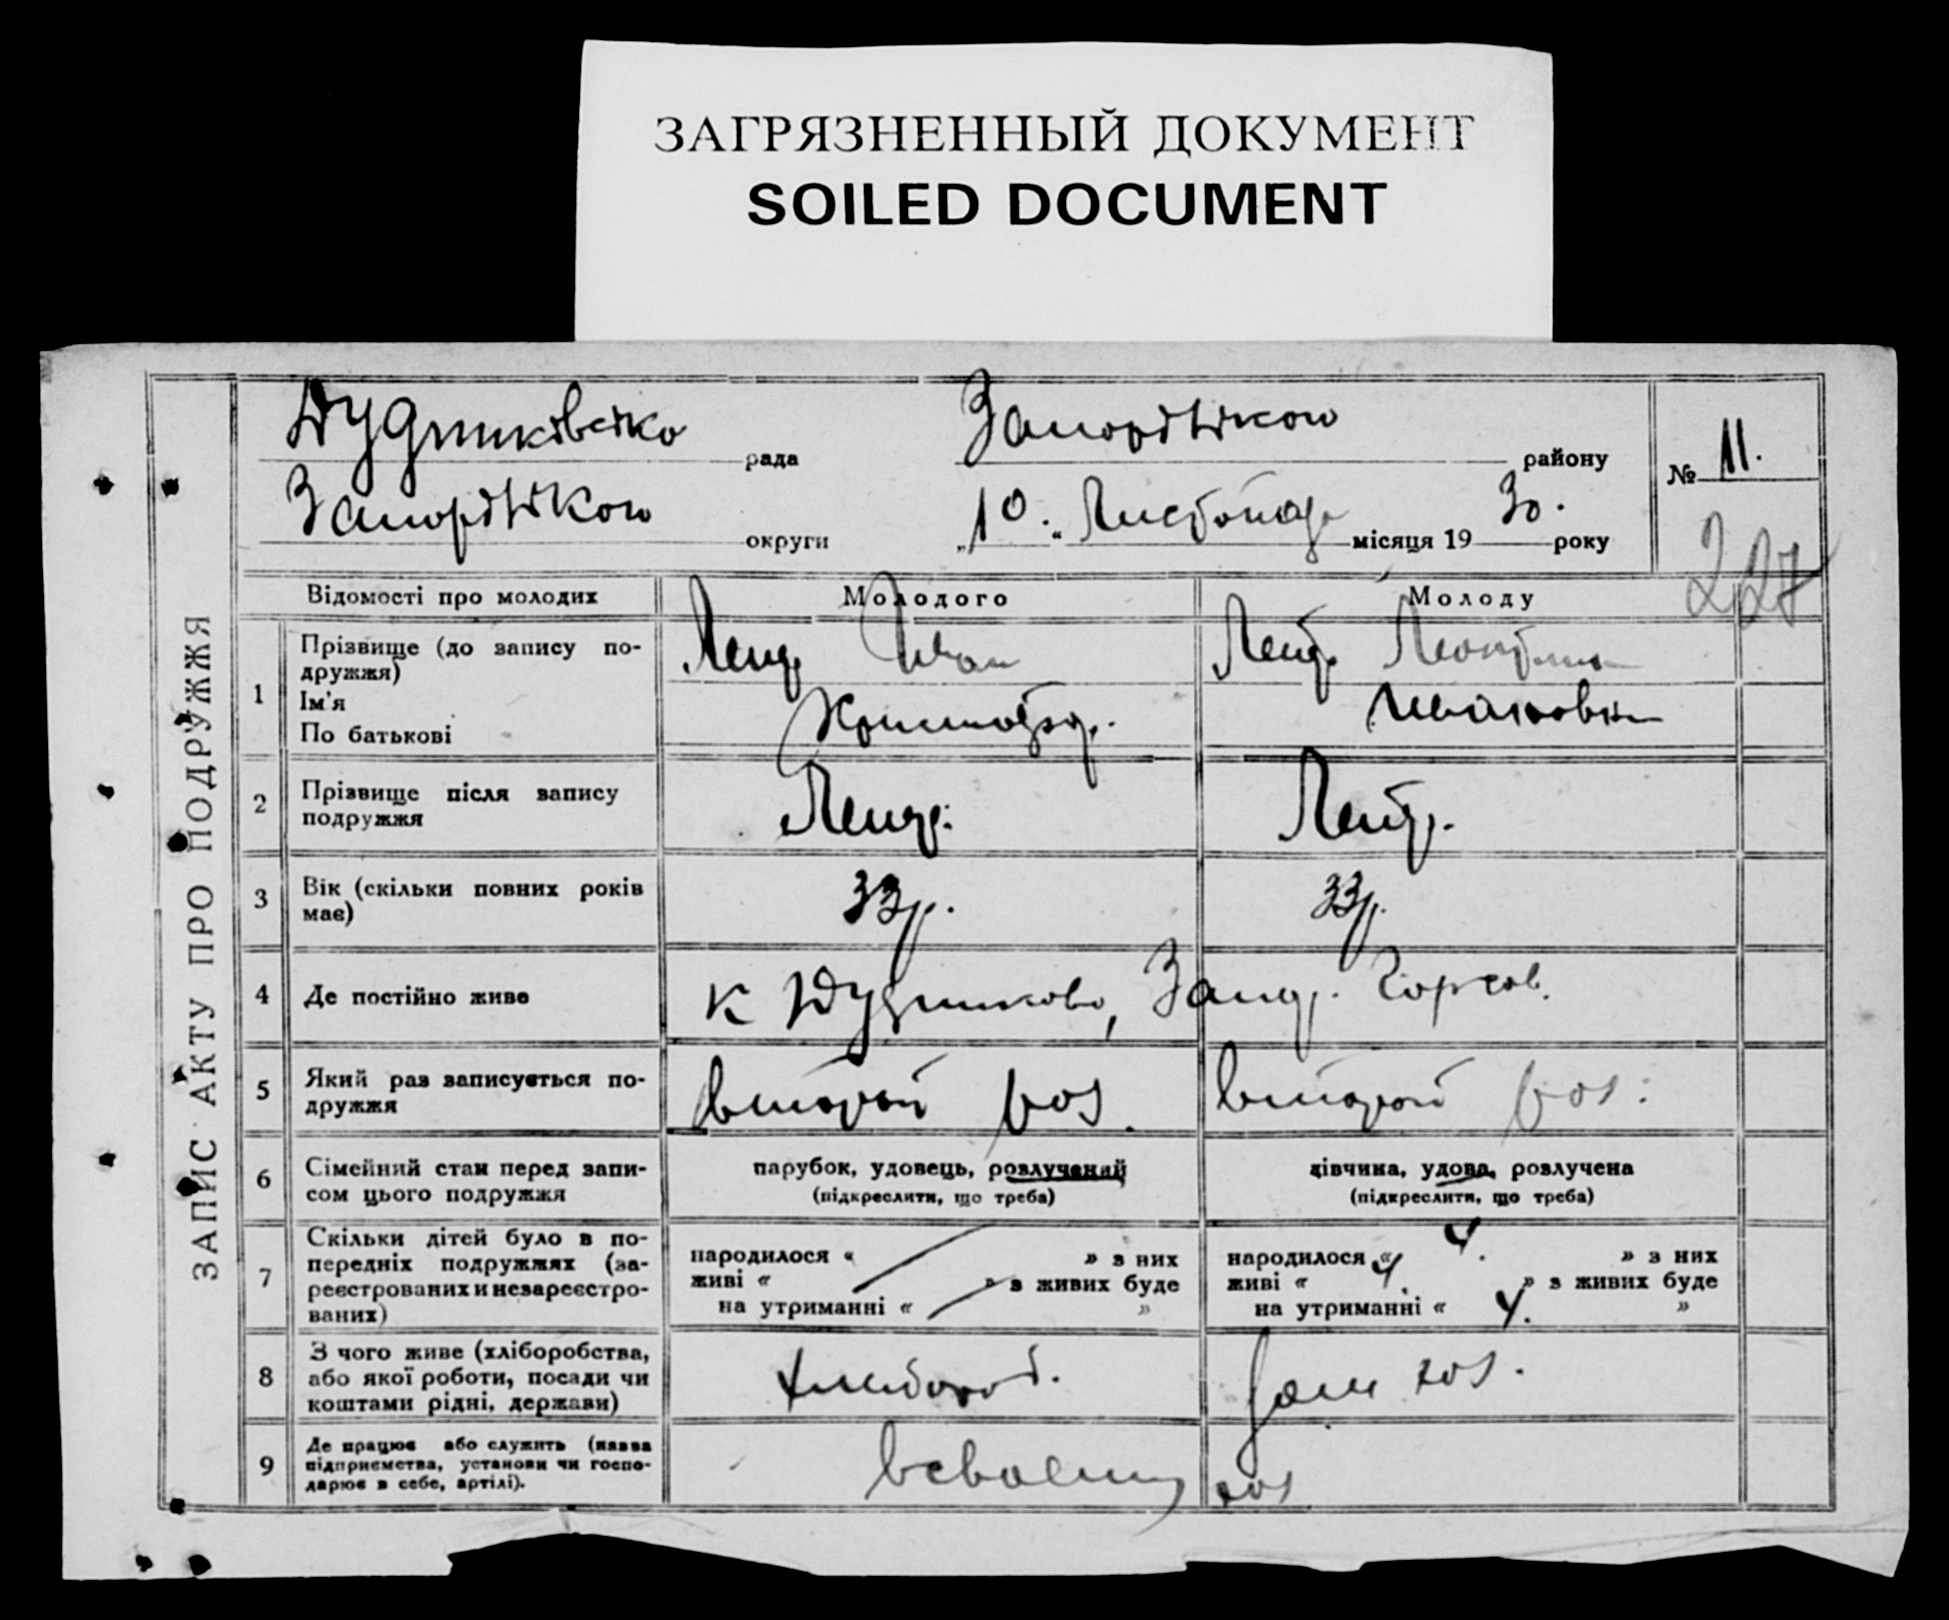 ЗАГРЯЗНЕННЫЙ ДОКУМЕНТ
SOILED DOCUMENT
ЗАПИС АКТУ ПРО ПОДРУЖЖЯ
рада
району
№ 11.
округи
„10.“ Листопад місяця 1930. року
227
Відомості про молодих
Молодого
Молоду
1
Прізвище (до запису по-
дружжя)
Ім'я
По батькові
Иван
2
Прізвище після запису
подружжя
3
Вік (скільки повних років
має)
33 р.
33 р.
4
Де постійно живе
5
Який раз записується по-
дружжя
второй раз.
второй раз.
6
Сімейний стан перед запи-
сом цього подружжя
парубок, удовець, розлучений
(підкреслити, що треба)
дівчина, удова, розлучена
(підкреслити, що треба)
7
Скільки дітей було в по-
передніх подружжях (за-
реєстрованих и незареєстро-
ваних)
народилося « » з них
живі « » з живих буде
на утриманні « »
народилося « 4. » з них
живі « 4. » з живих буде
на утриманні « 4. »
8
З чого живе (хліборобства,
або якої роботи, посади чи
коштами рідні, держави)
хлебороб.
дом хоз.
9
Де працює або служить (назва
підприємства, установи чи госпо-
дарює в себе, артілі).